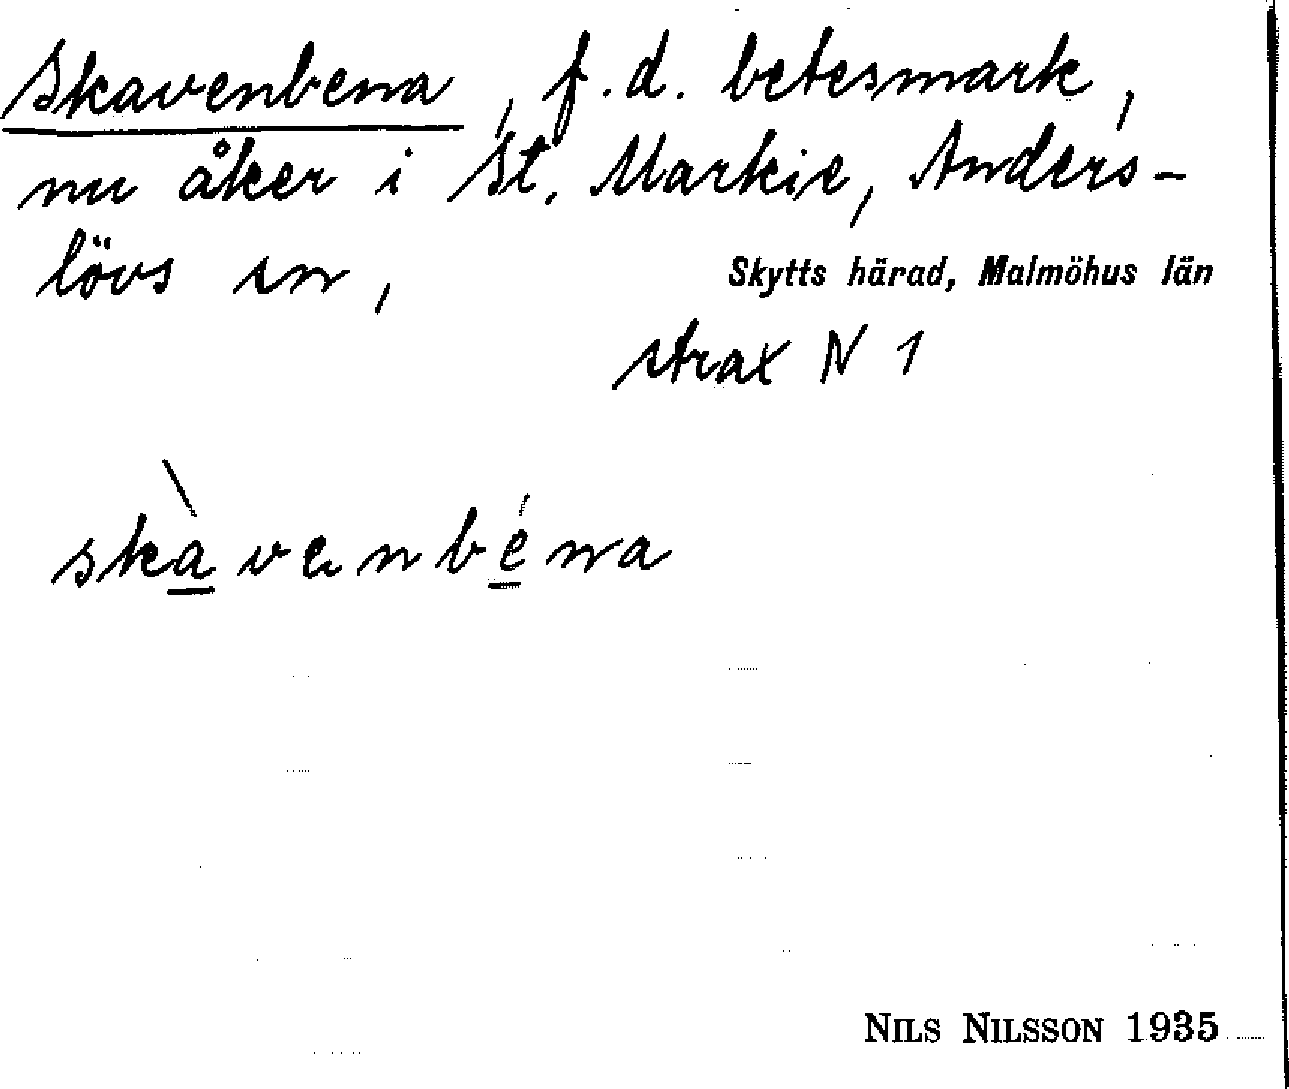 Skavenbena, f.d. betesmark,
nu åker i St. Markie, Anders-
lövs sn,
Skytts härad, Malmöhus län
strax N 1
skàvenbéna
NILS NILSSON 1935